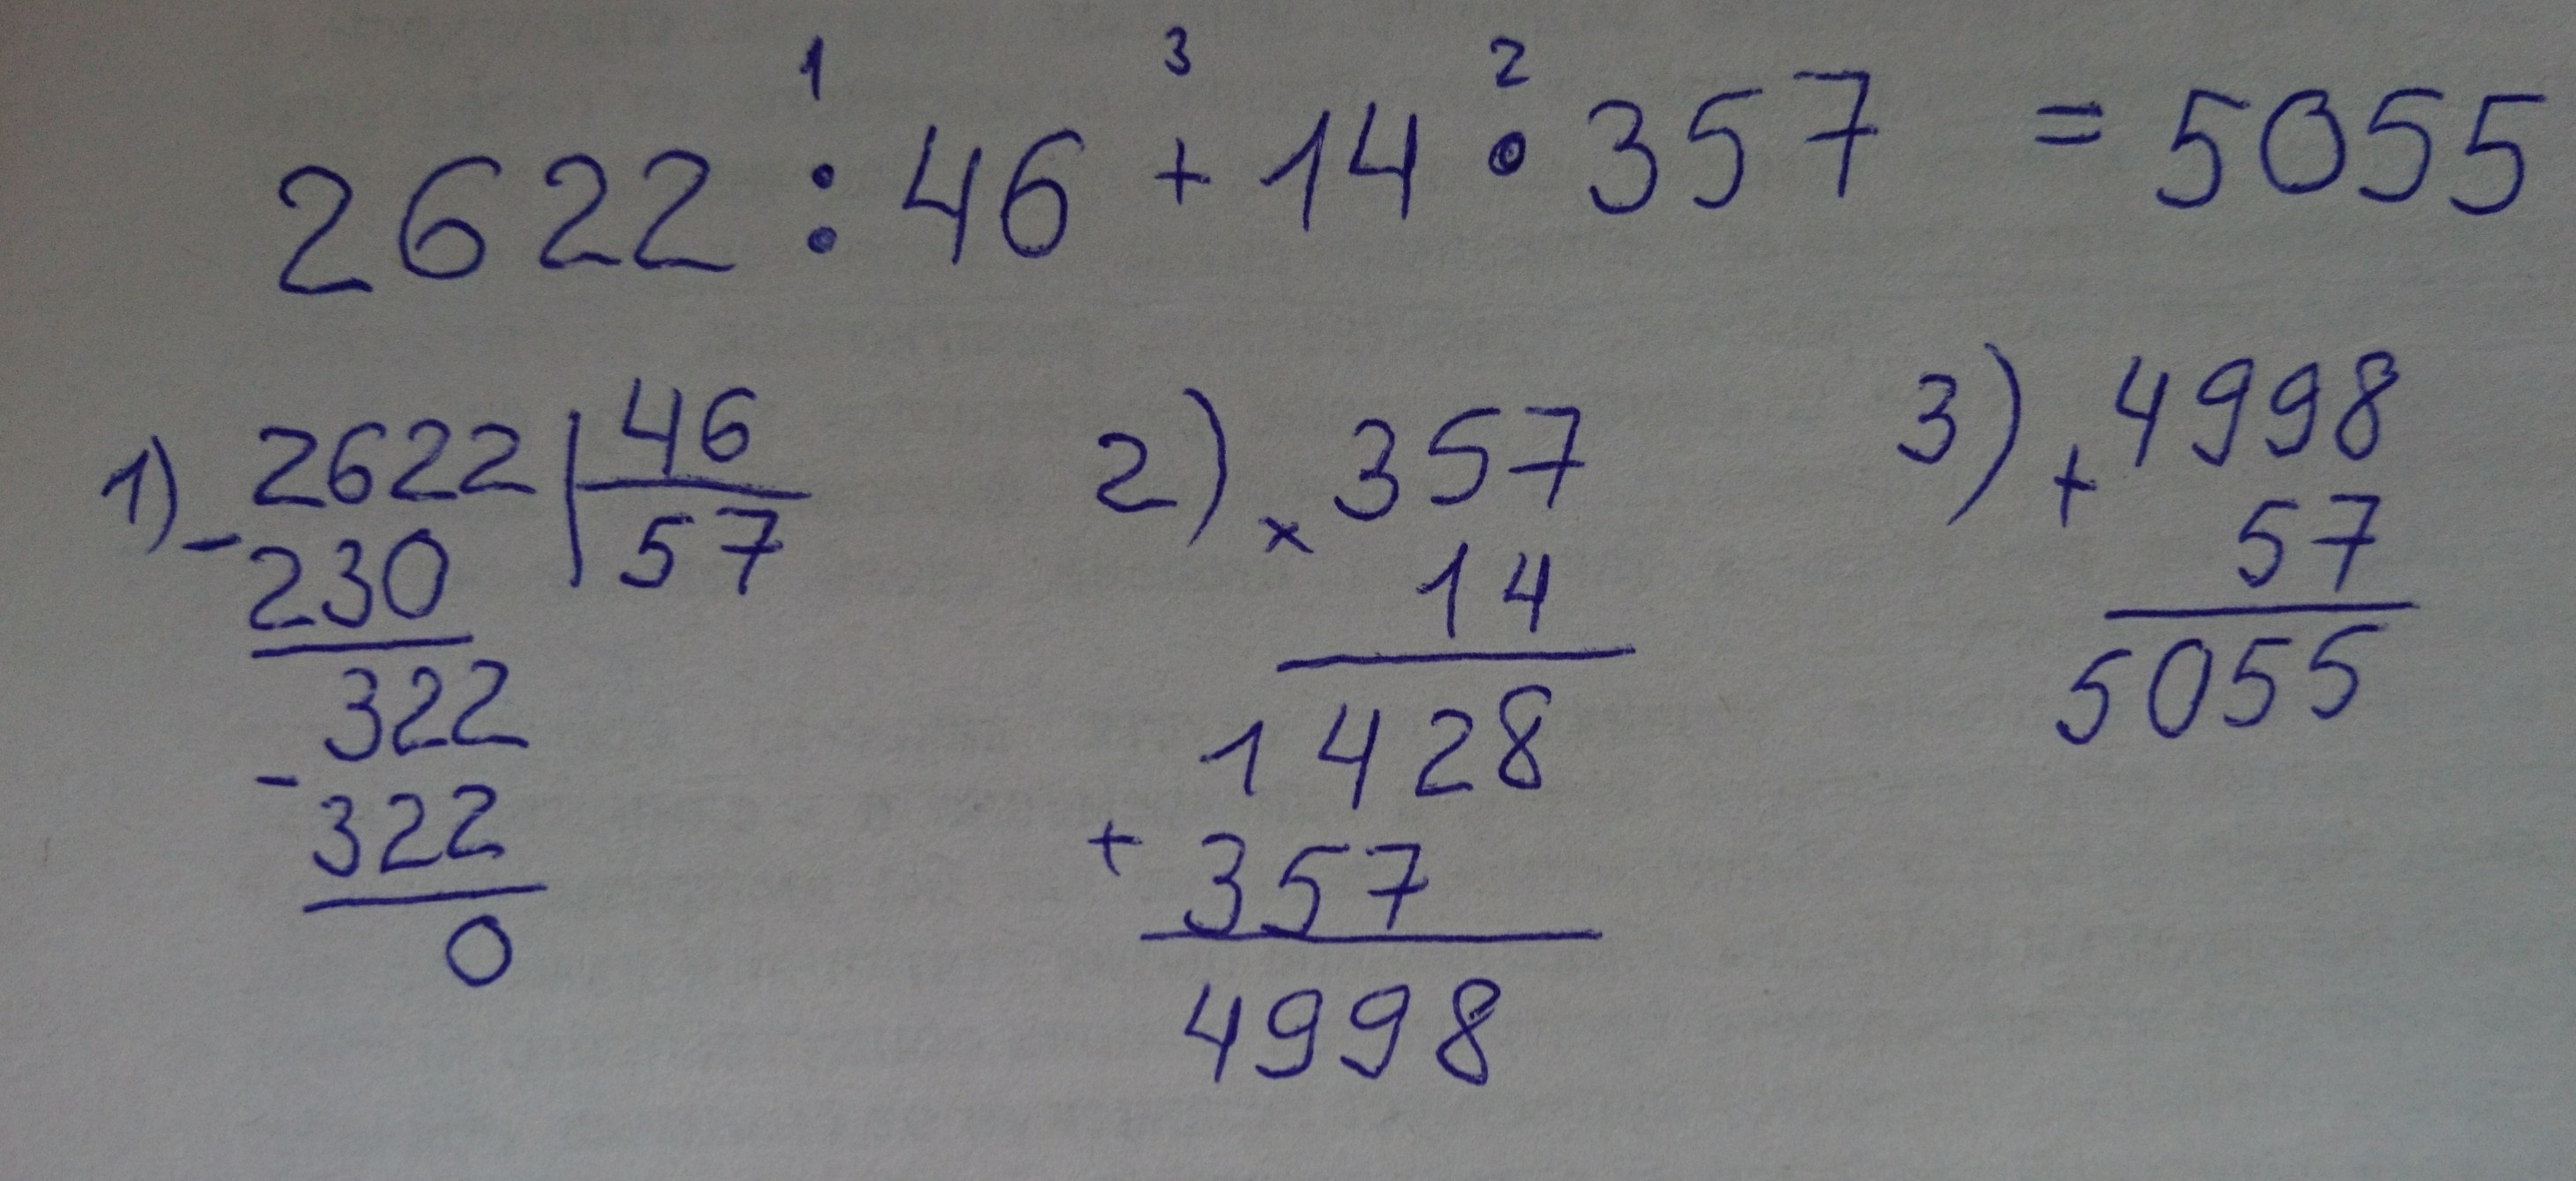 1 3 2
2622 : 46 + 14 • 357 = 5055
1) - 2622 | 46
230 57
322
- 322
0
2) x 357
14
1428
+ 357
4998
3) + 4998
57
5055